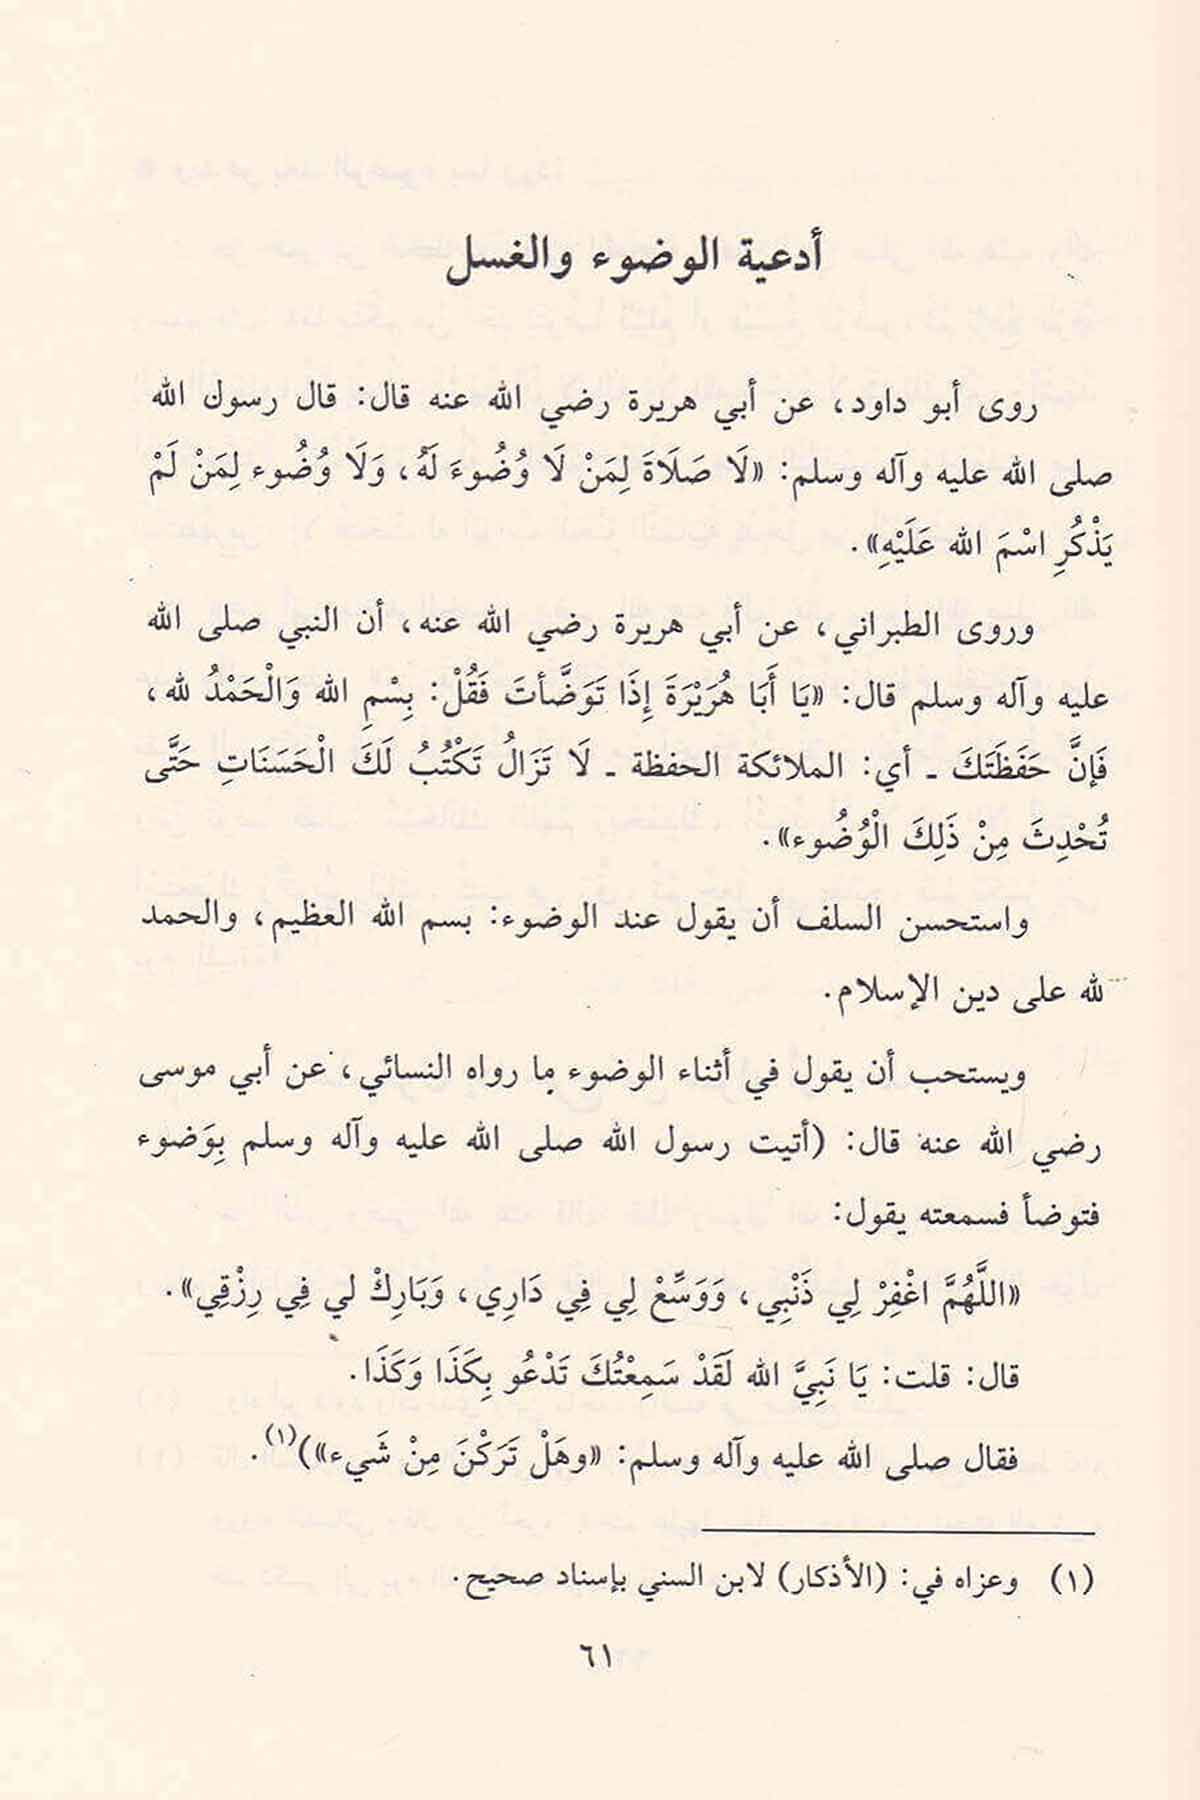 أدعية الوضوء والغسل
روى أبو داود، عن أبي هريرة رضي الله عنه قال: قال رسول الله
صلى الله عليه وآله وسلم: «لَا صَلَاةَ لِمَنْ لَا وُضُوءَ لَهُ، وَلَا وُضُوء لِمَنْ لَمْ
يَذْكُرِ اسْمَ الله عَلَيْهِ».
وروى الطبراني، عن أبي هريرة رضي الله عنه، أن النبي صلى الله
عليه وآله وسلم قال: «يَا أَبَا هُرَيْرَةَ إِذَا تَوَضَّأتَ فَقُلْ: بِسْمِ الله وَالْحَمْدُ لله،
فَإِنَّ حَفَظَتَكَ ـ أي: الملائكة الحفظة ـ لَا تَزَالُ تَكْتُبُ لَكَ الْحَسَنَاتِ حَتَّى
تُحْدِثَ مِنْ ذَلِكَ الْوُضُوء».
واستحسن السلف أن يقول عند الوضوء: بسم الله العظيم، والحمد
لله على دين الإسلام.
ويستحب أن يقول في أثناء الوضوء ما رواه النسائي، عن أبي موسى
رضي الله عنه قال: (أتيت رسول الله صلى الله عليه وآله وسلم بِوَضوء
فتوضأ فسمعته يقول:
«اللَّهُمَّ اغْفِرْ لِي ذَنْبِي، وَوَسِّعْ لِي فِي دَارِي، وَبَارِكْ لي فِي رِزْقِي».
قال: قلت: يَا نَبِيَّ الله لَقَدْ سَمِعْتُكَ تَدْعُو بِكَذَا وَكَذَا.
فقال صلى الله عليه وآله وسلم: «وهَلْ تَرَكْنَ مِنْ شَيء»)(١).
(١) وعزاه في: (الأذكار) لابن السني بإسناد صحيح.
٦١